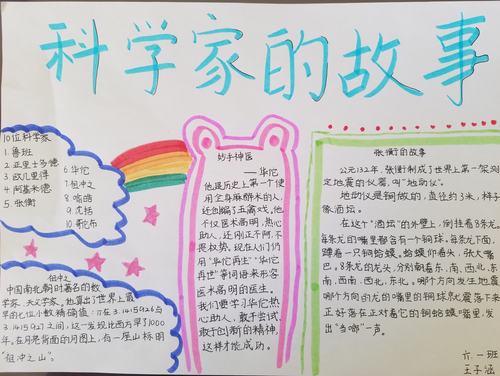 科学家的故事
10位科学家
1.鲁班
2.亚里士多德
3.欧几里得
4.阿基米德
5.张衡
6.华佗
7.祖冲之
8.毕昇
9.沈括
10.哥伦布
祖冲之
中国南北朝时著名的数
学家、天文学家。他算出了世界上最
早的七位小数精确值:π在3.1415926与
3.1415927之间,这一发现比西方早了1000
年。在月亮背面的月图上,有一座山标明
“祖冲之山”。
妙手神医
——华佗
他是历史上第一个使
用全身麻醉术的人,
还创编了五禽戏。他
不仅医术高明,热心
助人,还刚正不阿、不
畏权势。现在人们仍
用“华佗再生”“华佗
再世”等词语来形容
医术高明的医生。
我们要学习华佗热
心助人,敢于尝试,
敢于创新的精神,
这样才能成功。
张衡的故事
公元132年,张衡制成了世界上第一架测
定地震的仪器,叫“地动仪”。
地动仪是铜做的,直径约3米,样子
像酒坛。
在这个“酒坛”的外壁上,倒挂着8条龙。
每条龙的嘴里都含有一个铜球。每条龙下面,
蹲着一只铜蛤蟆。蛤蟆仰着头,张大嘴
巴。8条龙的龙头,分别朝着东、南、西、北、东
南、西南、西北、东北。哪个方向发生地震
哪个方向的龙的嘴里的铜球就会震落下来
正好落在正对着它的铜蛤蟆嘴里,发
出“当啷”一声。
六.一班
王子涵